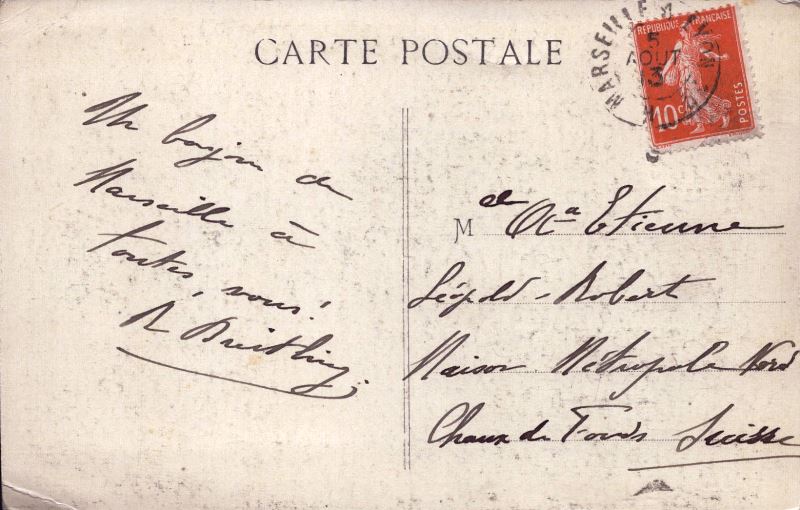 CARTE POSTALE
MARSEILLE
5
AOUT
13
REPUBLIQUE FRANÇAISE
10c
Un bonjour de
Marseille à
toutes, vous!
Mlle Etienne
Léopold-Robert
Maison Métropole Nord
Chaux de Fonds Suisse